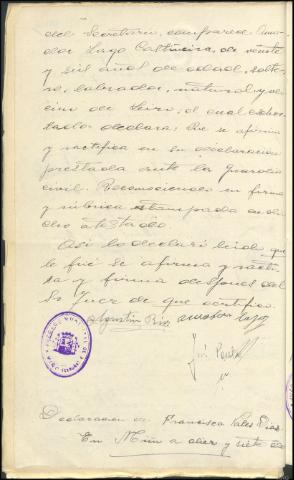 del Secretario, comparece Ama-
dor Lago Castiñeira, de veinte
y seis años de edad, solte-
ro, labrador, natural y ve-
cino de el cual exhor-
tado declara: Que se afirma
y ratifica en su declaración
prestada ante la Guardia
civil. Reconociendo su firma
y rúbrica estampada en di-
cho atestado
Así lo declaró leída que
le fué se afirma y ratifi-
ca y firma después del
Sr Juez de que certifico.
Agustin Amador Lago
José
Declaración de Francisco Sales Dias
En a diez y siete de